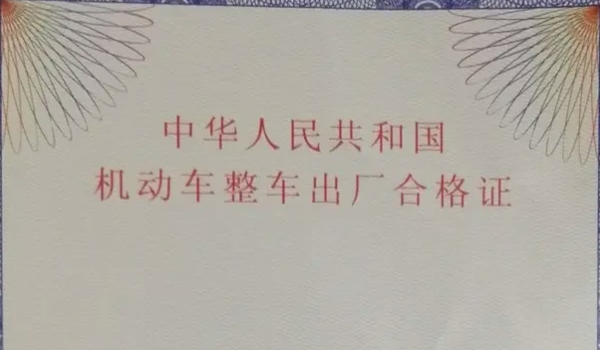 中华人民共和国
机动车整车出厂合格证